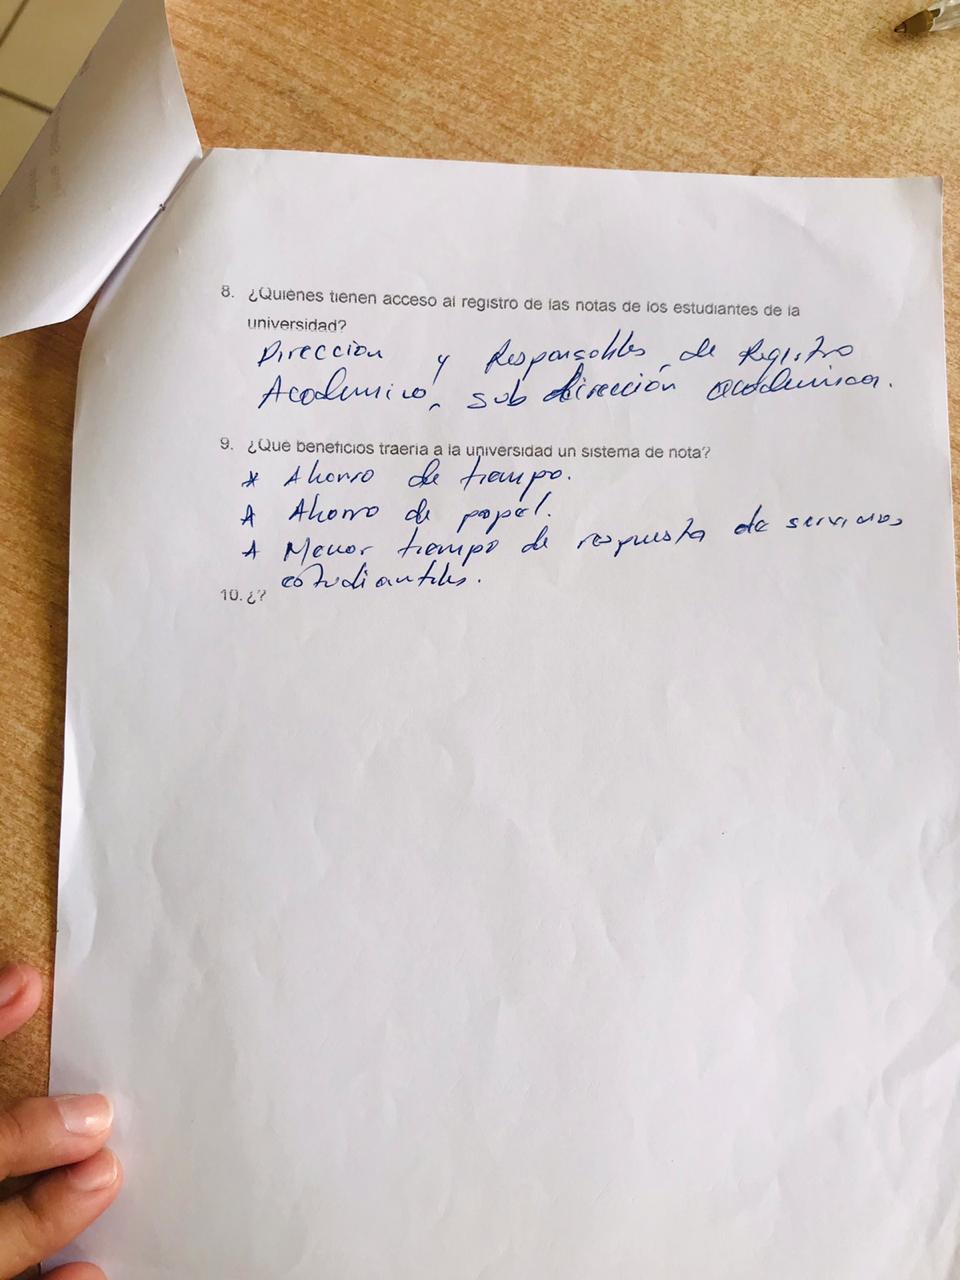 8. ¿Quiénes tienen acceso al registro de las notas de los estudiantes de la
universidad?
Dirección y Responsables de Registro
Academico, sub dirección academica.
9. ¿Qué beneficios traería a la universidad un sistema de nota?
* Ahorro de tiempo.
* Ahorro de papel.
* Menor tiempo de respuesta de servicios
estudiantiles.
10. ¿?